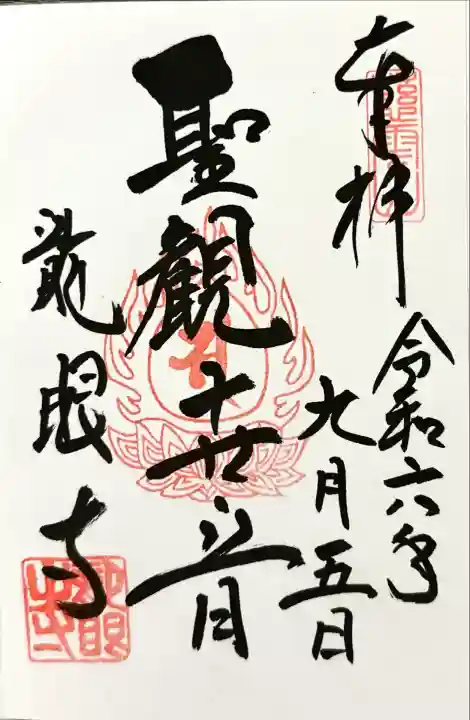 奉拝
令和六年
九月五日
聖観世音
龍眼寺
龍眼